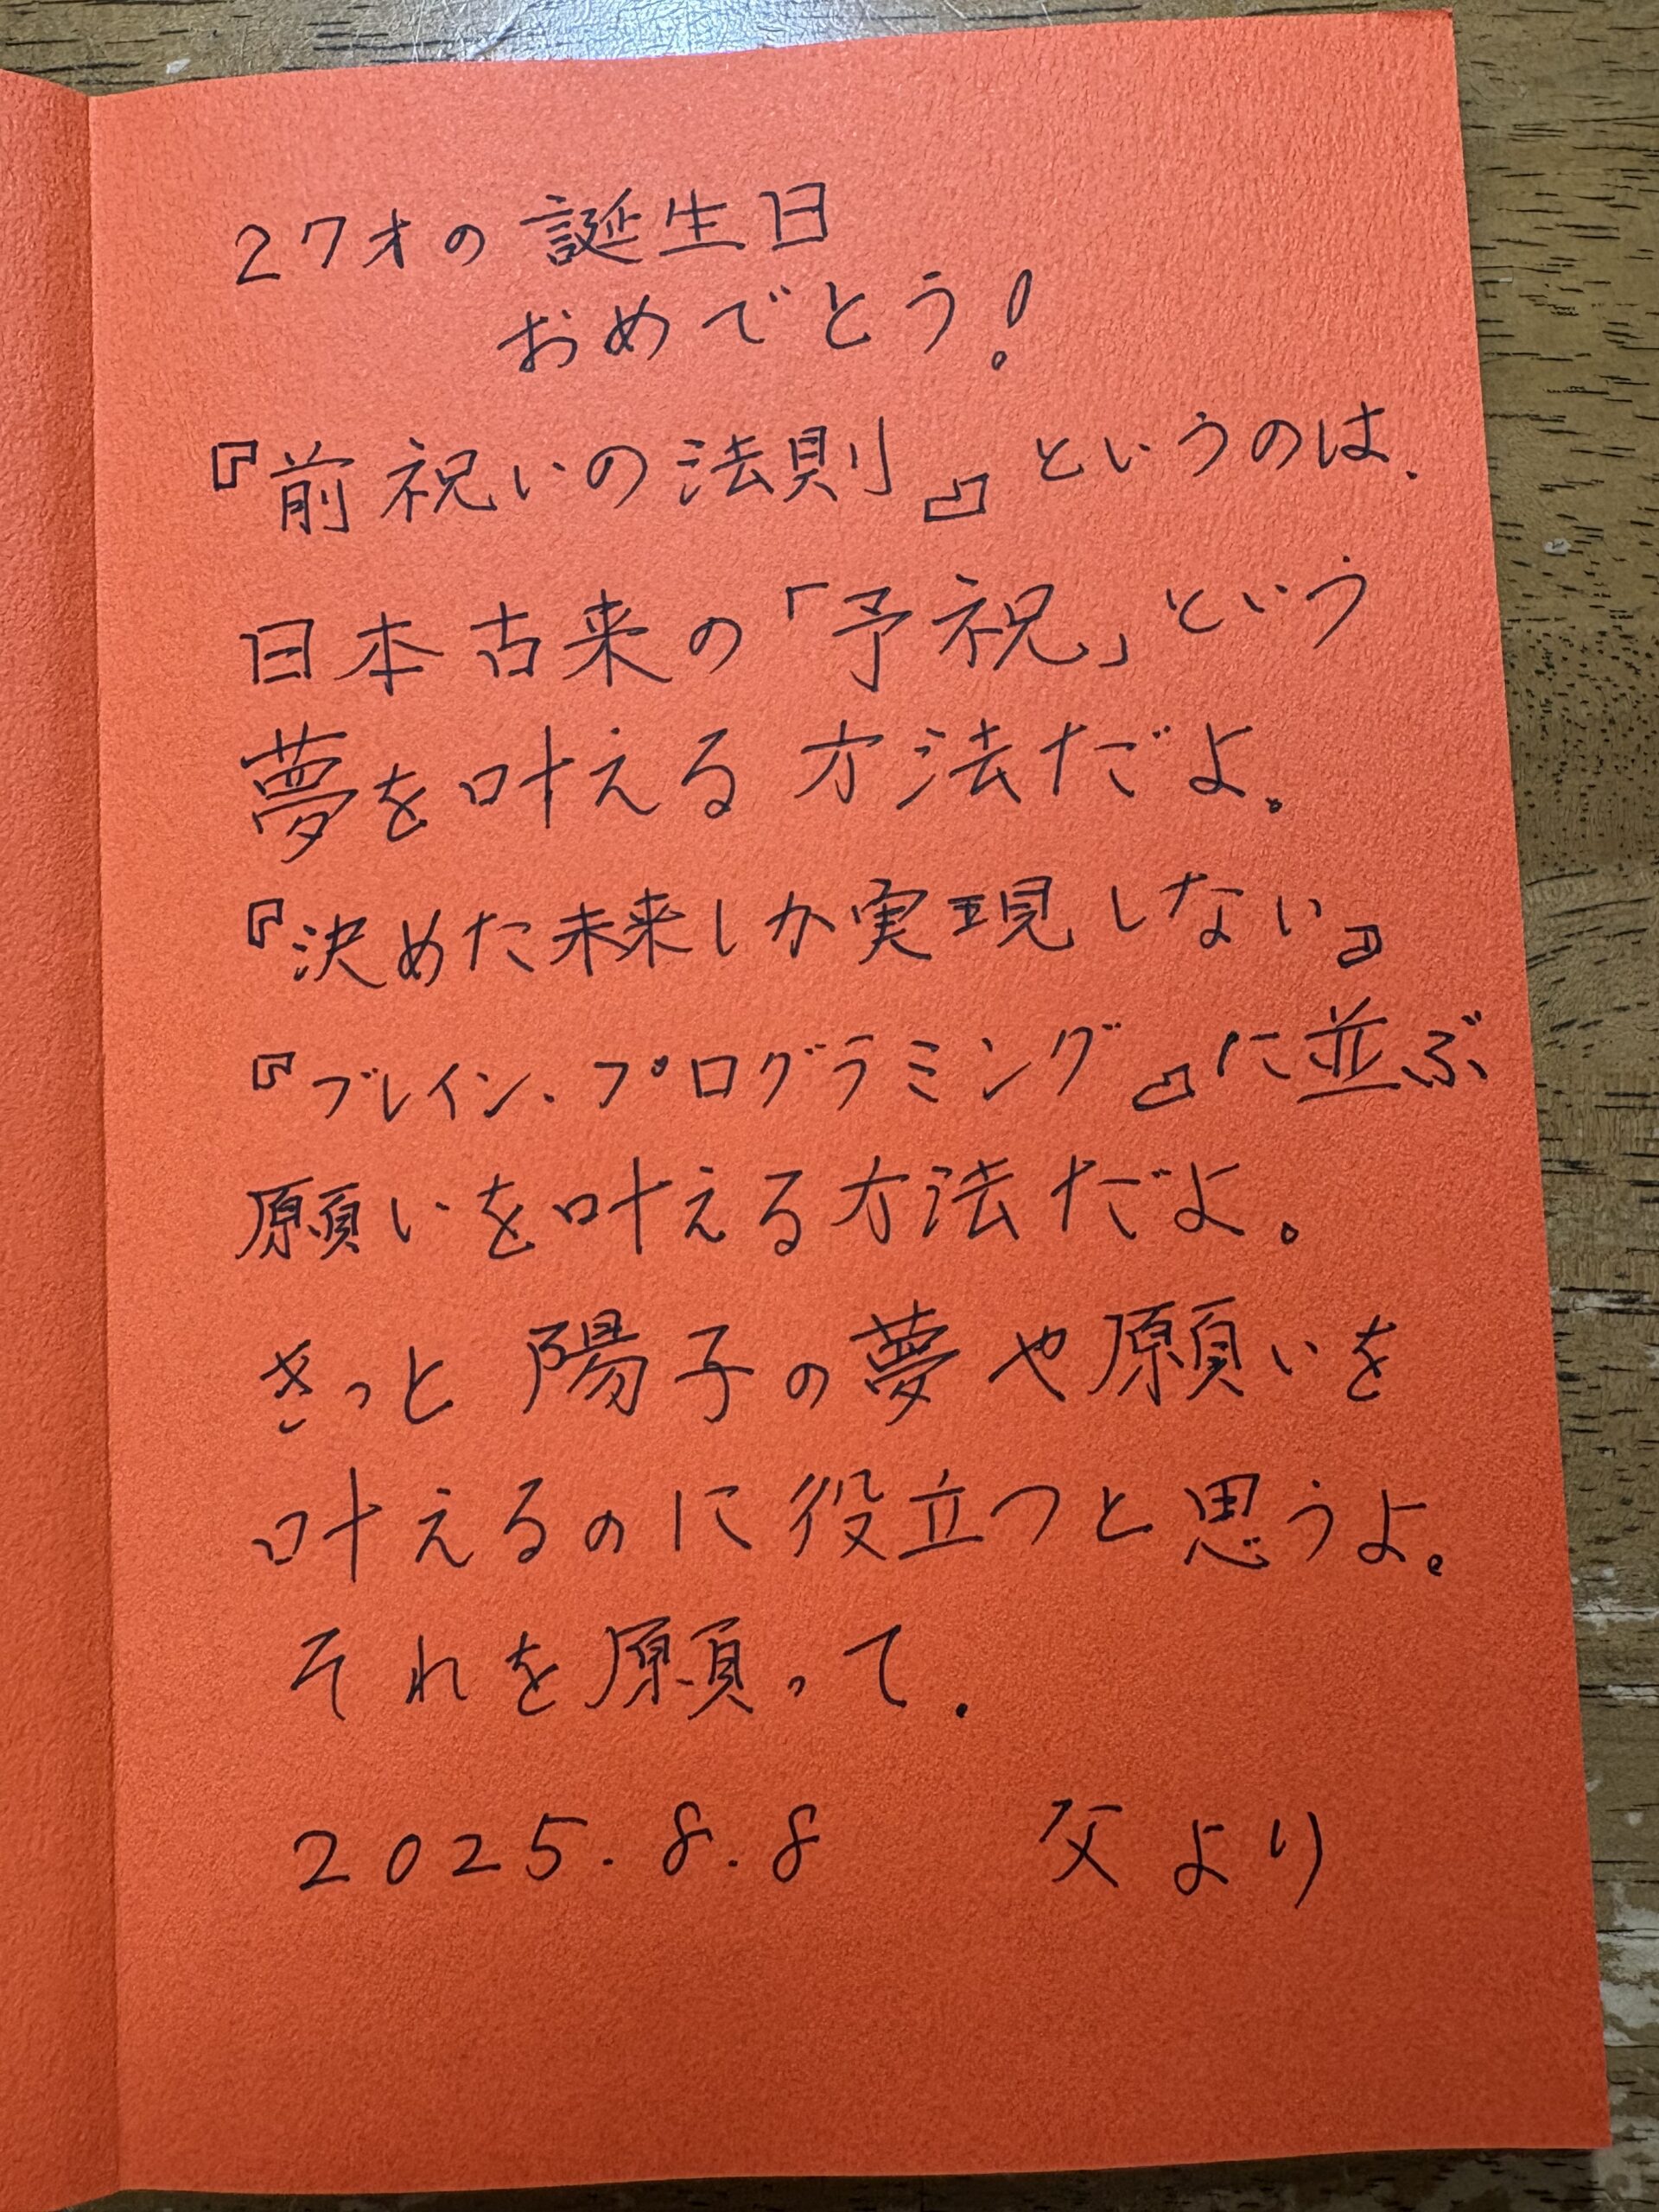 27才の誕生日
おめでとう!
『前祝いの法則』というのは、
日本古来の「予祝」という
夢を叶える方法だよ。
『決めた未来しか実現しない』
『ブレイン、プログラミング』に並ぶ
願いを叶える方法だよ。
きっと陽子の夢や願いを
叶えるのに役立つと思うよ。
それを願って.
2025.8.8 父より